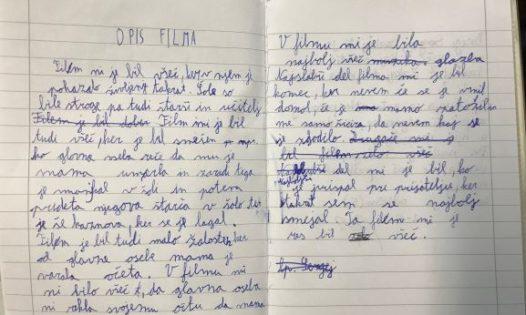 OPIS FILMA
Film mi je bil všeč, ker v njem je
pokazano življenje takrat. Šole so
bile stroge pa tudi starši in učitelji.
Film je bil dober Film mi je bil
tudi všeč, ker je smešen po npr.
ko glavna oseba reče da mu je
mama umrla in zaradi tega
je manjkal v šoli in potem
prideta njegova starša v šolo ter
je še kaznovan, ker se je lagal.
Film je bil tudi malo žalosten, ker
od glavne osebe mama je
varala očeta. V filmu mi
ni bilo všeč, da glavna oseba
ni rekla svojemu očetu da mama
V filmu mi je bila
najbolj všeč muzika glazba
Najslabši del filma mi je bil
konec, ker nevem če se je vrnil
domov, če je mamo zatožil
me samo da nevem kaj se
je zgodilo. Drugače mi je
bil film zelo všeč
Najboljši del mi je bil, ko
je prispal pre prijatelju, ker
takrat sem se najbolj
smejal. Ta film mi je
bil zelo všeč.
Lp. Sergej